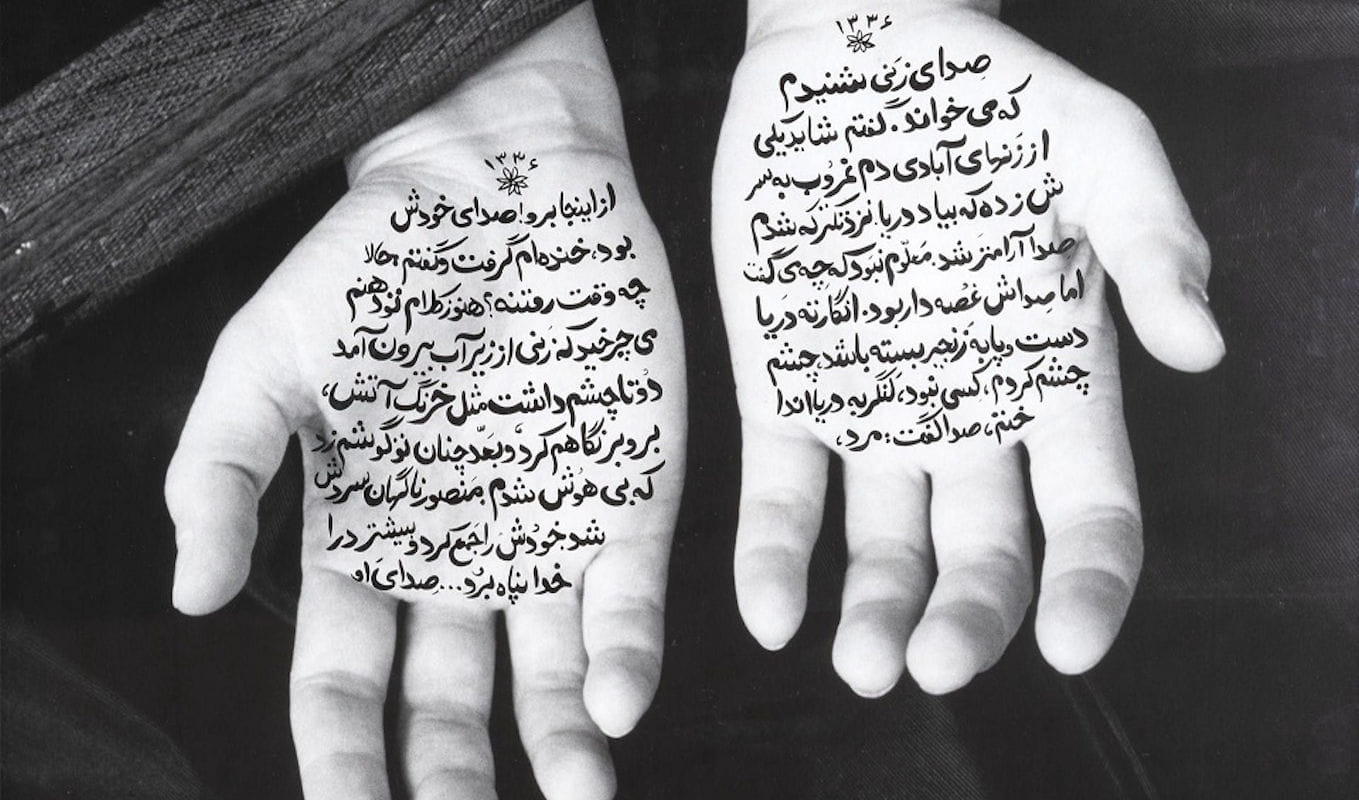 ۱۳۳۶
صدای زنی شنیدم
که می خواند. گفتم شاید یکی
از زنهای آبادی دم غروب به سر
ش زده که بیاد دریا. نزدیکتر که شدم
صدا آرامتر شد. معلوم نبود که چه می گفت
اما صداش غصه دار بود. انگار ته دریا
دست و پابه زنجیر بسته باشد، چشم
چشم کردم، کسی نبود، لنگر به دریا اندا
ختم، صدا گفت: مرد،
۱۳۳۶
از اینجا برو! صدای خودش
بود، خنده ام گرفت وگفتم حالا
چه وقت رفتنه؟ هنوز کلام تو دهنم
می چرخید که زنی از زیر آب بیرون آمد
دوتا چشم داشت مثل خرنگ آتش،
بروبر نگاهم کرد، وبعد چنان تو گوشم زد
که بی هوش شدم. منصور ناگهان سردش
شد خودش راجمع کرد و بیشتر درا
خدا پناه برد... صدای او